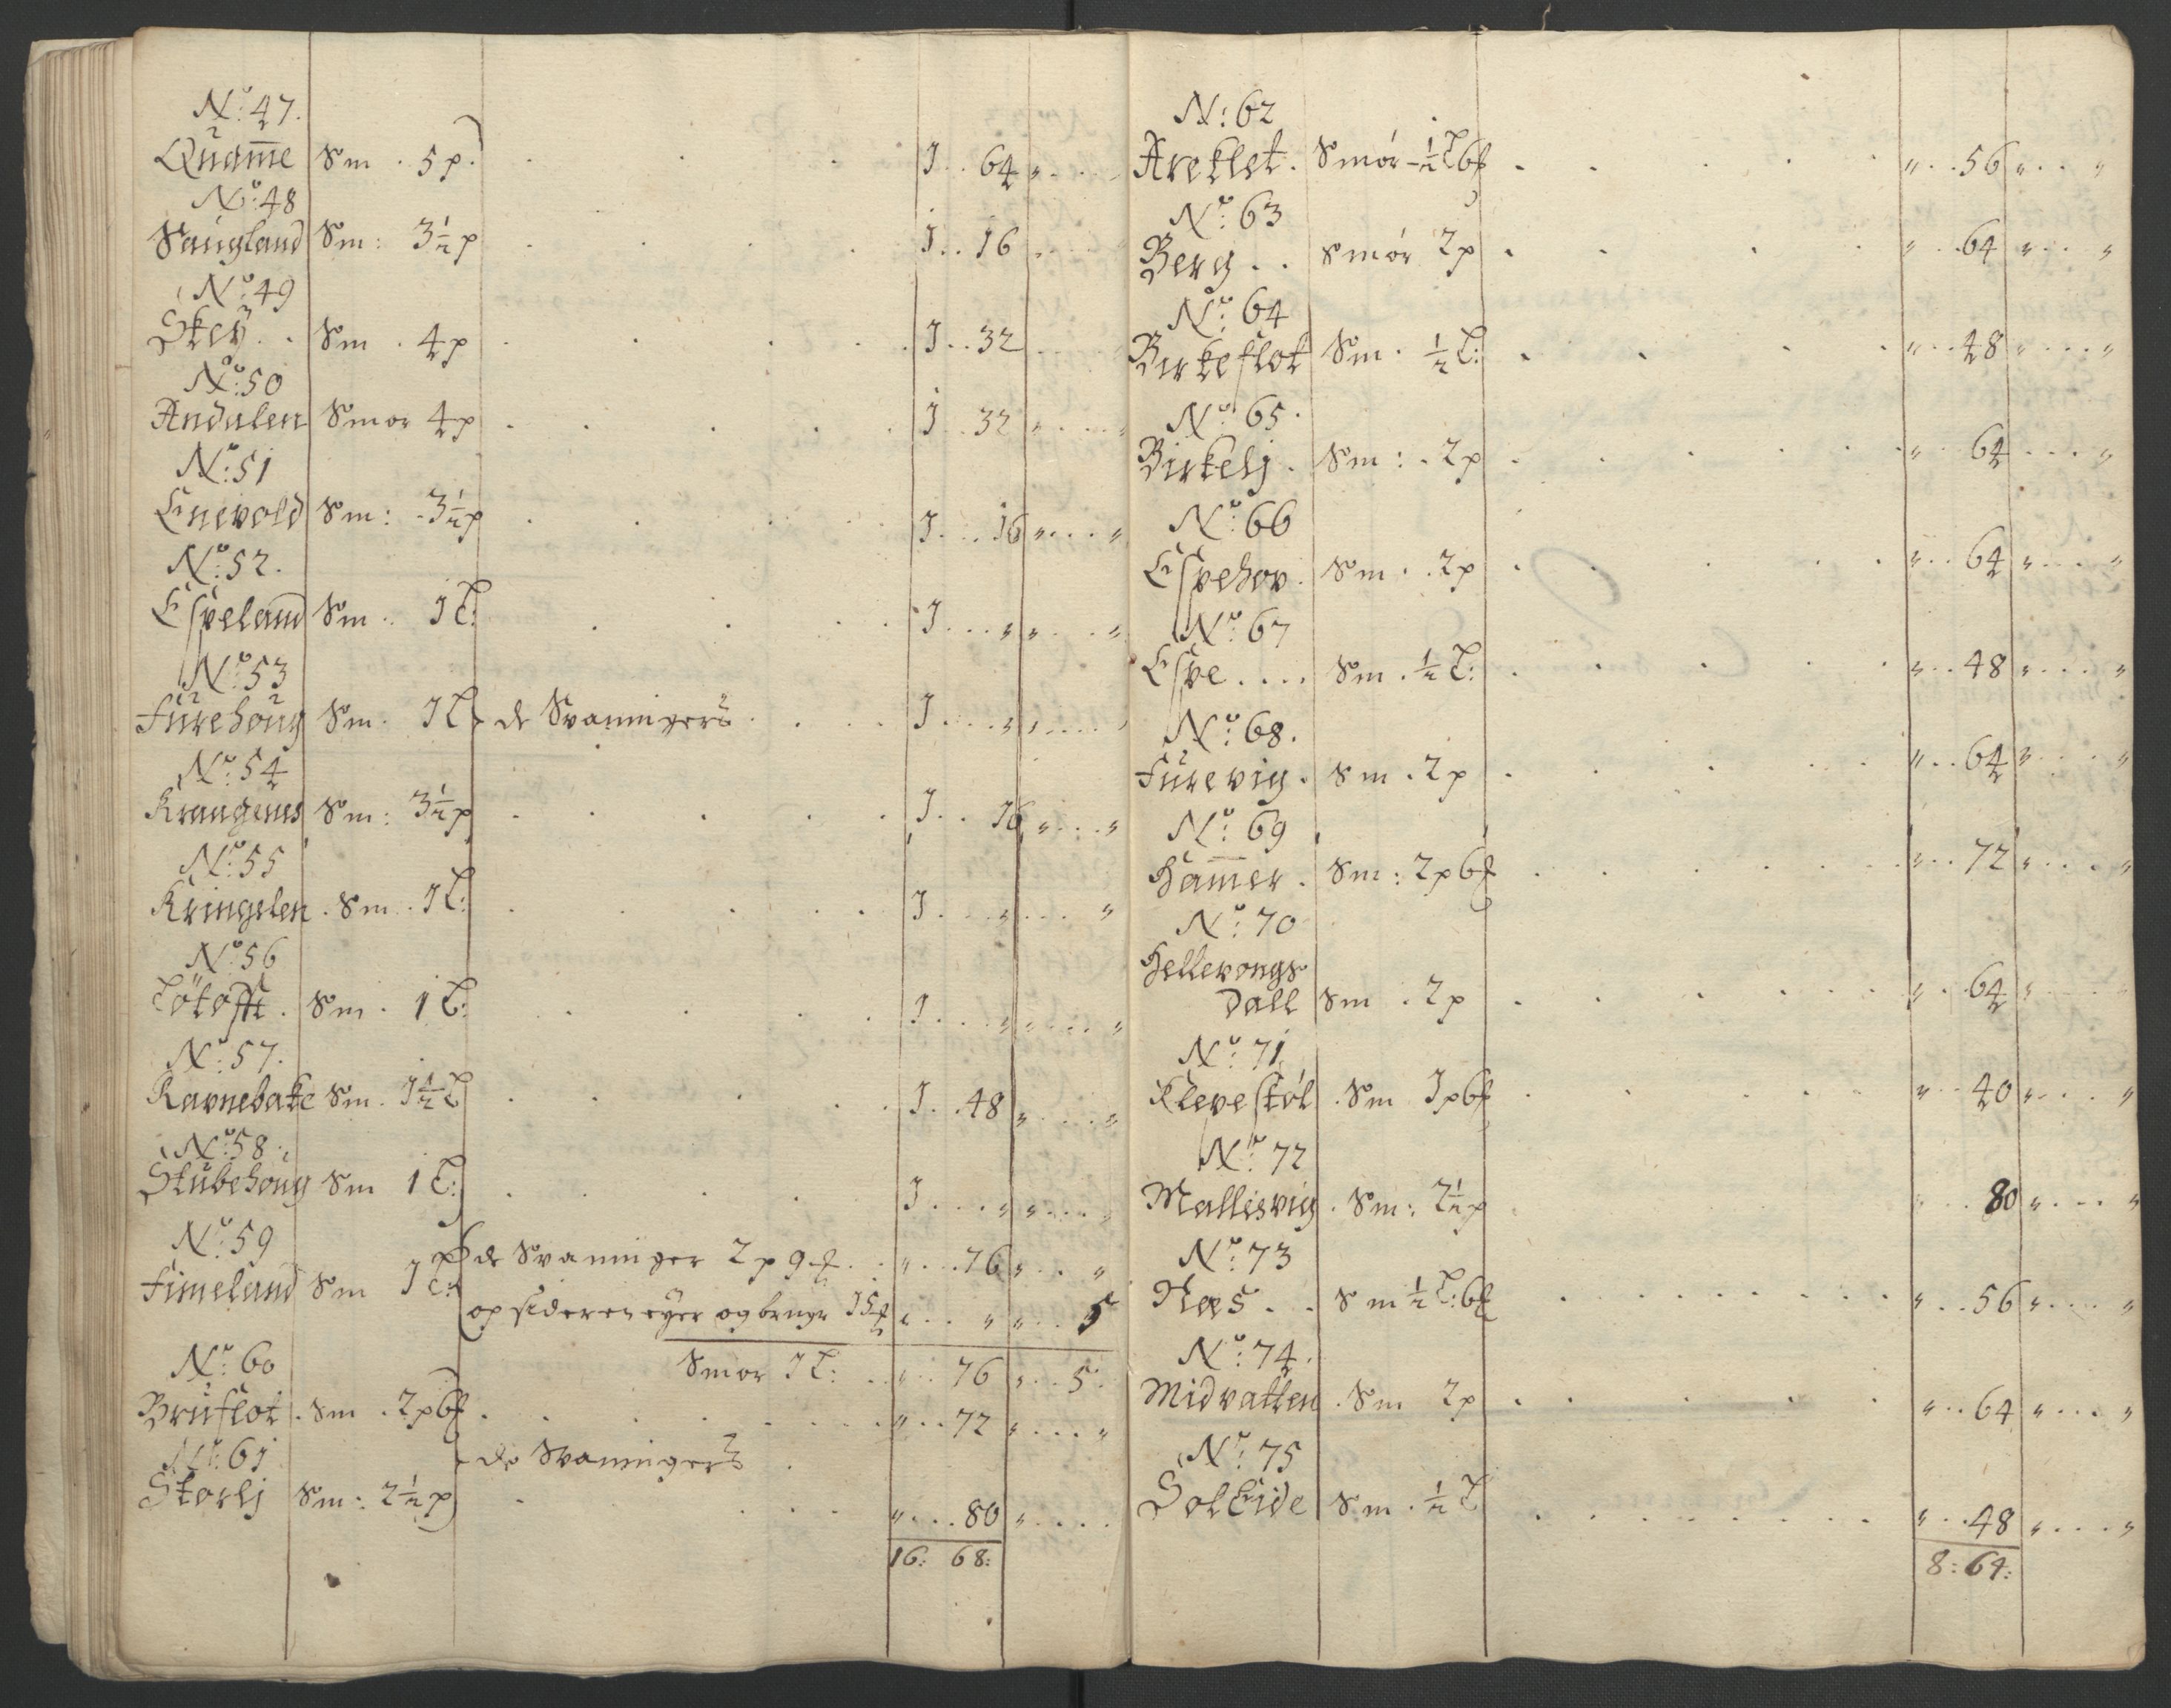 No: 47.
Quam̅e Sm . 5 p. . . . 1 . . 64 " . . .
No: 48
Saugland Sm: 3½ p . . . . 1 . . 16 . . .
No: 49
Skey . . Sm . 4 p . . . . . 1 . . 32 . . .
No: 50
Andalen Smor 4 p . . . . . 1 . . 32 " . . . "
No: 51
Enevold Sm: . 3½ p . . . . 1 . . . 16 " . . . "
No: 52.
Espeland Sm . 1 L: . . . . 1 . . . " " . . . "
No: 53
Furehoug Sm . 1 L de Svanninger̃s . . . . 1 . . . " " . . . .
No: 54
Krangenes Sm: 3½ p . . . . . 1 . . 16 " . . . "
No: 55
Kringelen . Sm . 1 L: . . . . 1 . . . " . . . "
No: 56
Töfte . Sm . 1 L: . . . 1 . . . " " . . . "
No: 57.
Ravnebake Sm . 1½ L . . . . . 1 . . 48 " . . . "
No: 58 .
Stubehoug Sm 1 L: . . . . 1 . . . " " . . . "
No: 59
Fimeland Sm 1 L: de Svanninger 2 p 9 . . " . . . 76 " . . . "
opsideren eyer og brugr 15 " . . . " " . . . 5
Smor 1 L: . . " . . 76 " . . . 5
No: 60
Bruflot . Sm . 2 p 6 . . . . . . . " . . 72 " . . . "
No: 61
de Svanninger̃s .
Storlj Sm: 2½ p . . . . " . . . 80 " . . . .
16: 68:
N: 62
Areklet . Smör - ½ L 6 . . . . . " . . . 56 " . . . "
No: 63
Berg . . Smör 2 p . . . . " . . . 64 " . . . "
No: 64
Birkeflot Sm . ½ L: . . . . " . . 48 " . . . "
No: 65.
Birkelj . Sm: . 2 p . . . . . " . . 64 . . . "
No: 66
Espehov . Sm . . 2 p . . . . " . . 64 " . . . "
No: 67
Espe . . . . Sm . ½ L: . . . . . " . . 48 " . . . "
No: 68.
Furevig . Sm . 2 p . . . . . " . . 64 " . . . "
No: 69
Ham̅er . Sm: 2 p 6 . . . . . " . . 72 " . . . "
No: 70
Hellevongs
Dall Sm . 2 p . . . . . . " . . 64 " . . . .
No: 71
Klevestöl . Sm 1 p 6 . . . . " . . 40 " . . . "
No: 72
Mallesvig . Sm: 2½ p . . . 80 " . . . "
No: 73
Nees . . Sm ½ L: 6 . . . . . . . . " . . . 56 " . . . "
No: 74.
Midvatten . Sm 2 p . . . . . " . . . 64 " . . . "
No: 75
SolEide Sm . ½ L . . . . . . . " . . . 48 " . . . "
8: 64: